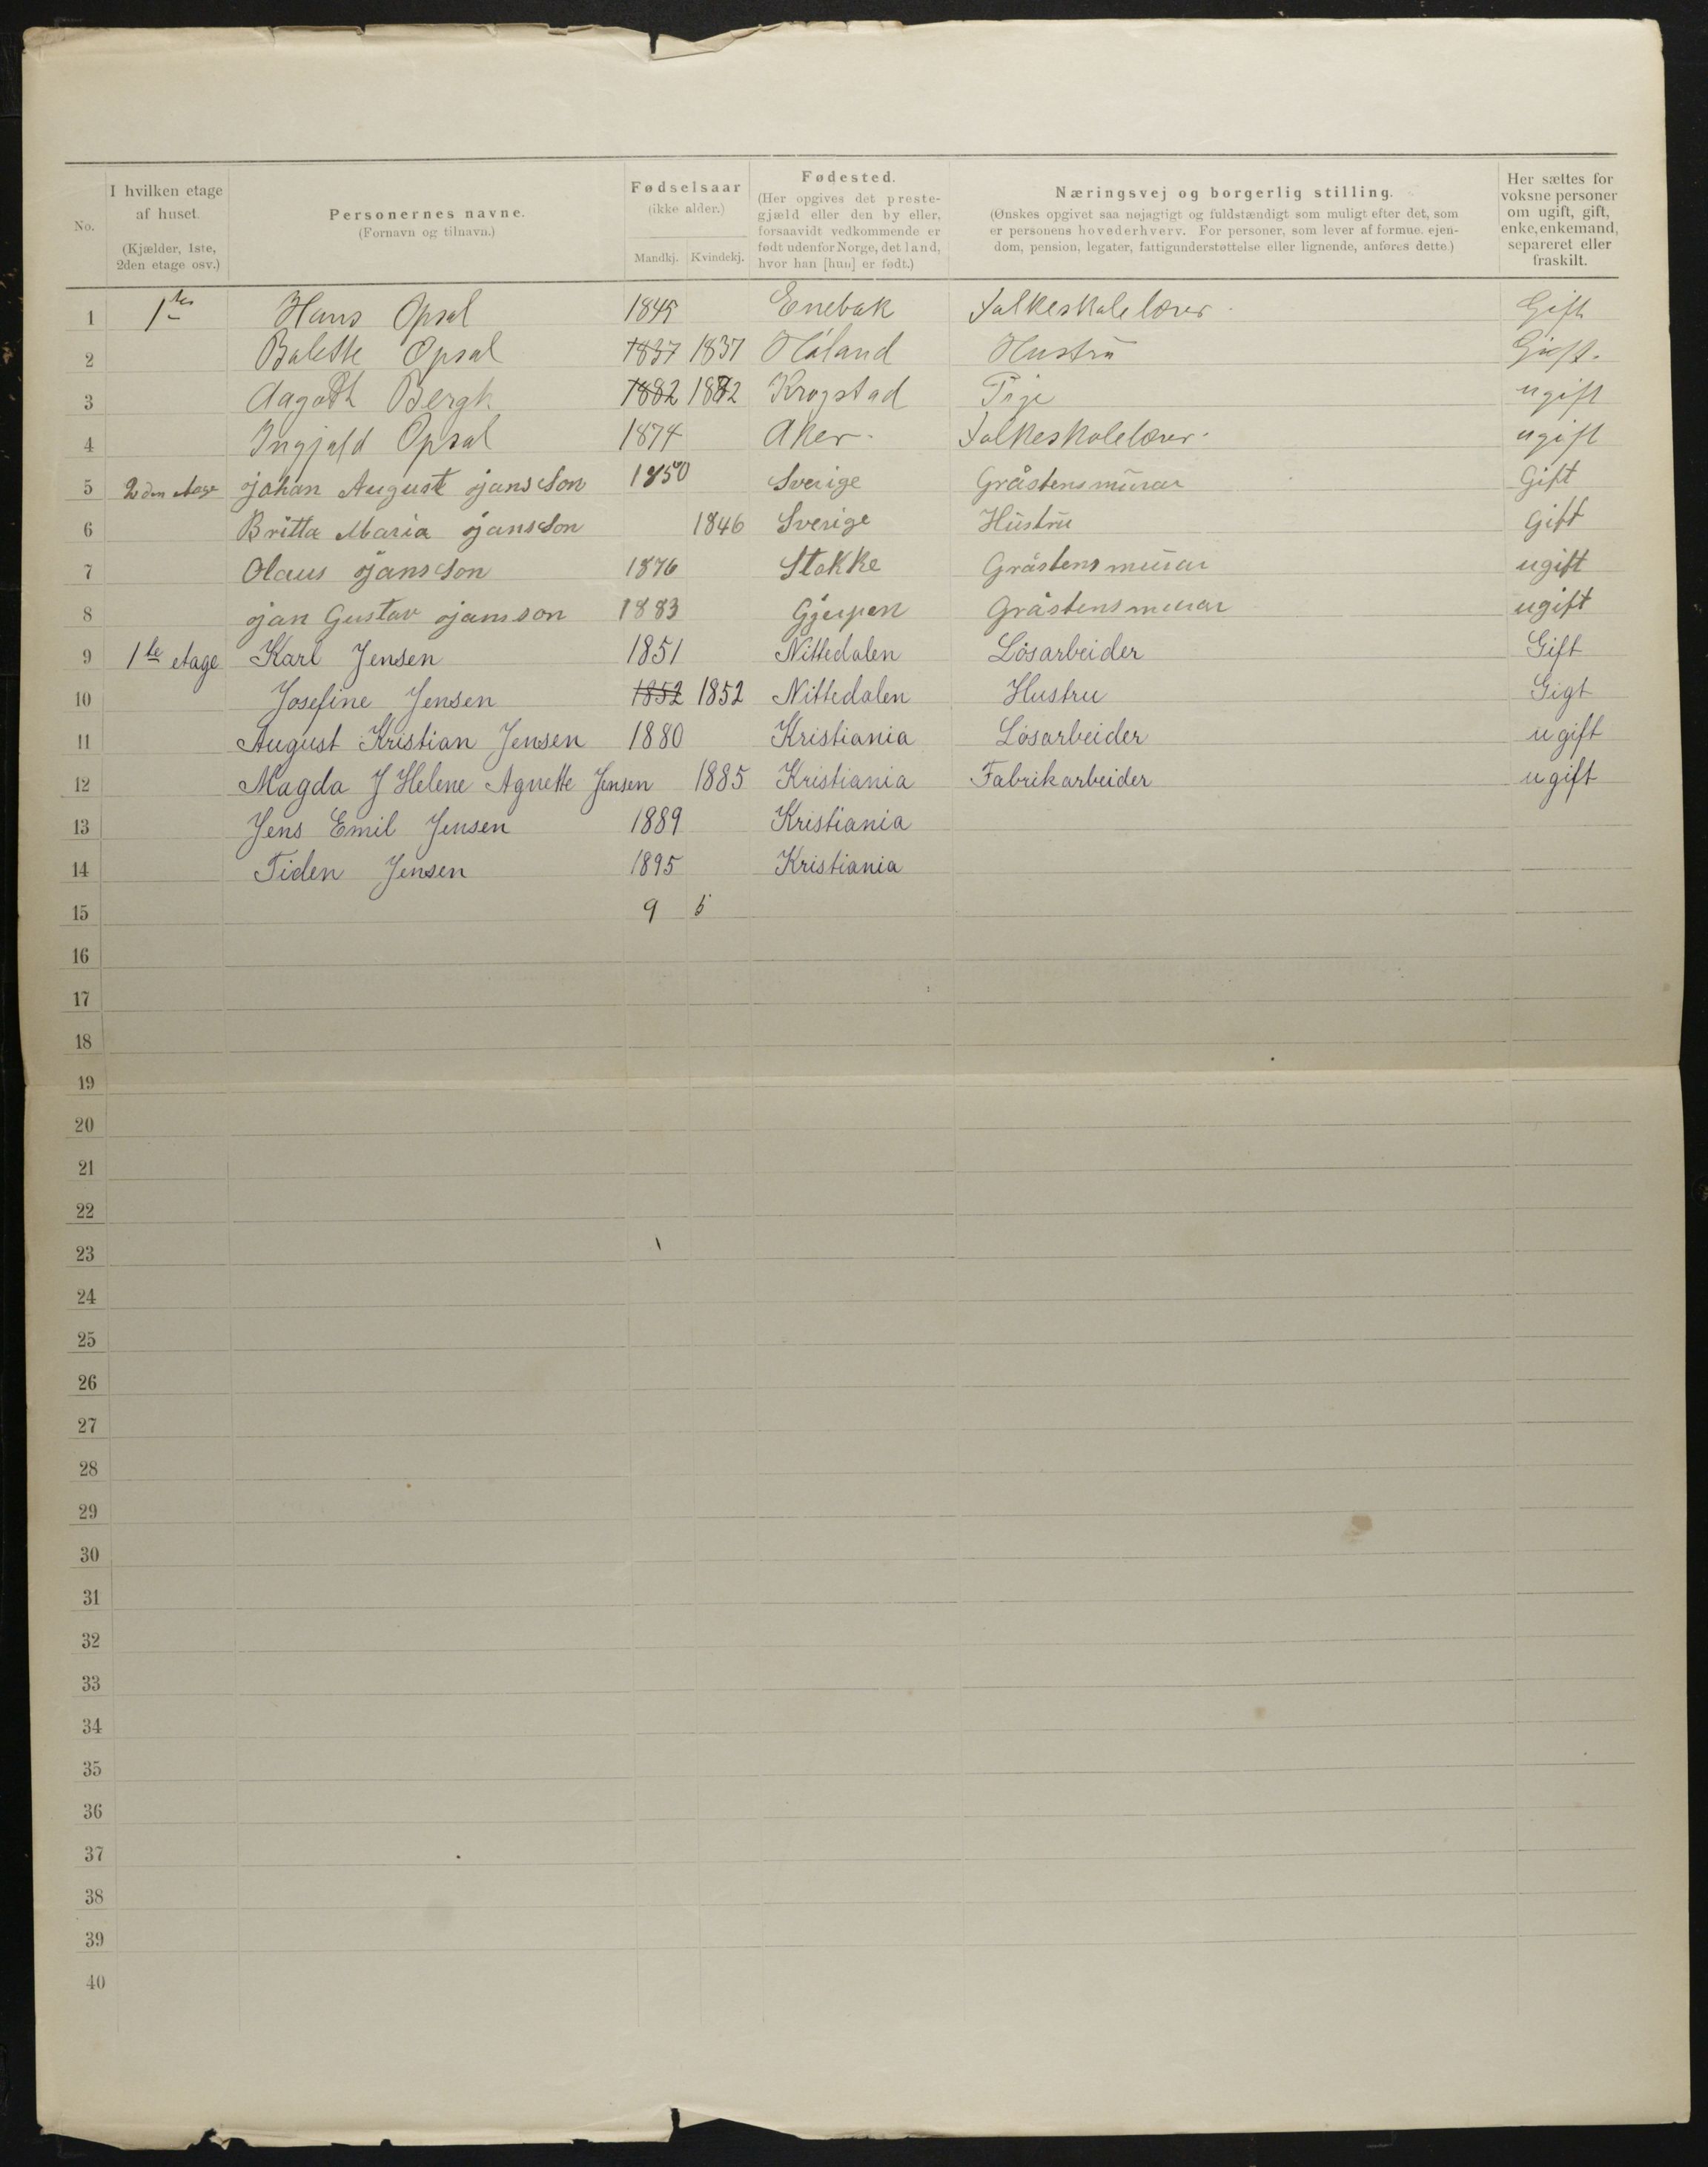 No. | I hvilken etage af huset. (Kjælder, 1ste, 2den etage osv.) | Personernes navne. (Fornavn og tilnavn.) | Fødselsaar (ikke alder.) Mandkj. Kvindekj. | Fødested. (Her opgives det prestegjæld eller den by eller, forsaavidt vedkommende er født udenfor Norge, det land, hvor han [hun] er født.) | Næringsvej og borgerlig stilling. (Ønskes opgivet saa nøjagtigt og fuldstændigt som muligt efter det, som er personens hovederhverv. For personer, som lever af formue, ejendom, pension, legater, fattigunderstøttelse eller lignende, anføres dette.) | Her sættes for voksne personer om ugift, gift, enke, enkemand, separeret eller fraskilt.
1 1ste Hans Opsal 1845 Enebak Folkeskolelærer Gift
2 Balette Opsal 1837 1837 Høland Hustru Gift.
3 Aagoth Bergh 1882 1882 Krogstad Pige ugift
4 Ingjald Opsal 1874 Aker. Folkeskolelærer. ugift
5 2den etage Johan August Jansson 1850 Sverige Gråstensmurar Gift
6 Britta Maria Jansson 1846 Sverige Hustru Gift
7 Olaus Jansson 1876 Stokke Gråstensmurar ugift
8 Jan Gustav Jansson 1883 Gjerpen Gråstensmurar ugift
9 1te etage Karl Jensen 1851 Nittedalen Løsarbeider Gift
10 Josefine Jensen 1852 1852 Nittedalen Hustru Gigt
11 August Kristian Jensen 1880 Kristiania Løsarbeider ugift
12 Magda J Helene Agnette Jensen 1885 Kristiania Fabrikarbeider ugift
13 Jens Emil Jensen 1889 Kristiania
14 Tiden Jensen 1895 Kristiania
15 9 5
16
17
18
19
20
21
22
23
24
25
26
27
28
29
30
31
32
33
34
35
36
37
38
39
40